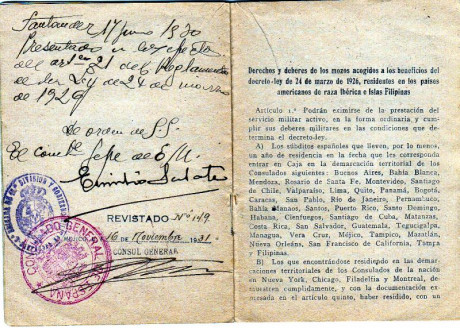 Santander 17 junio 1930
Presentado
del artº 21 del Reglamento
de la Ley de 24 de marzo
de 1926
De orden de S.S.
El
Emilio
REVISTADO Nº 149
MEJICO 16 DE Noviembre 1931
CONSUL GENERAL
CONSULADO GENERAL
ESPAÑA
Derechos y deberes de los mozos acogidos a los beneficios del
decreto-ley de 24 de marzo de 1926, residentes en los países
americanos de raza ibérica e Islas Filipinas
Artículo 1.º Podrán eximirse de la prestación del
servicio militar activo, en la forma ordinaria, y cumplir
sus deberes militares en las condiciones que determina
el decreto-ley.
A) Los súbditos españoles que lleven, por lo menos,
un año de residencia en la fecha que les corresponda
entrar en Caja en la demarcación territorial de los
Consulados siguientes: Buenos Aires, Bahía Blanca,
Mendoza, Rosario de Santa Fe, Montevideo, Santiago
de Chile, Valparaíso, Lima, Quito, Panamá, Bogotá,
Caracas, San Pablo, Río de Janeiro, Pernambuco,
Bahía, Santos, Puerto Rico, Santo Domingo,
Habana, Cienfuegos, Santiago de Cuba, Matanzas,
Costa Rica, San Salvador, Guatemala, Tegucigalpa,
Managua, Vera Cruz, Méjico, Tampico, Mazatlán,
Nueva Orleáns, San Francisco de California, Tampa
y Filipinas.
B) Los que encontrándose residiendo en las demarcaciones
territoriales de los Consulados de la nación
en Nueva York, Chicago, Filadelfia y Montreal, demuestren
cumplidamente, y con la documentación expresada
en el artículo quinto, haber residido, con un